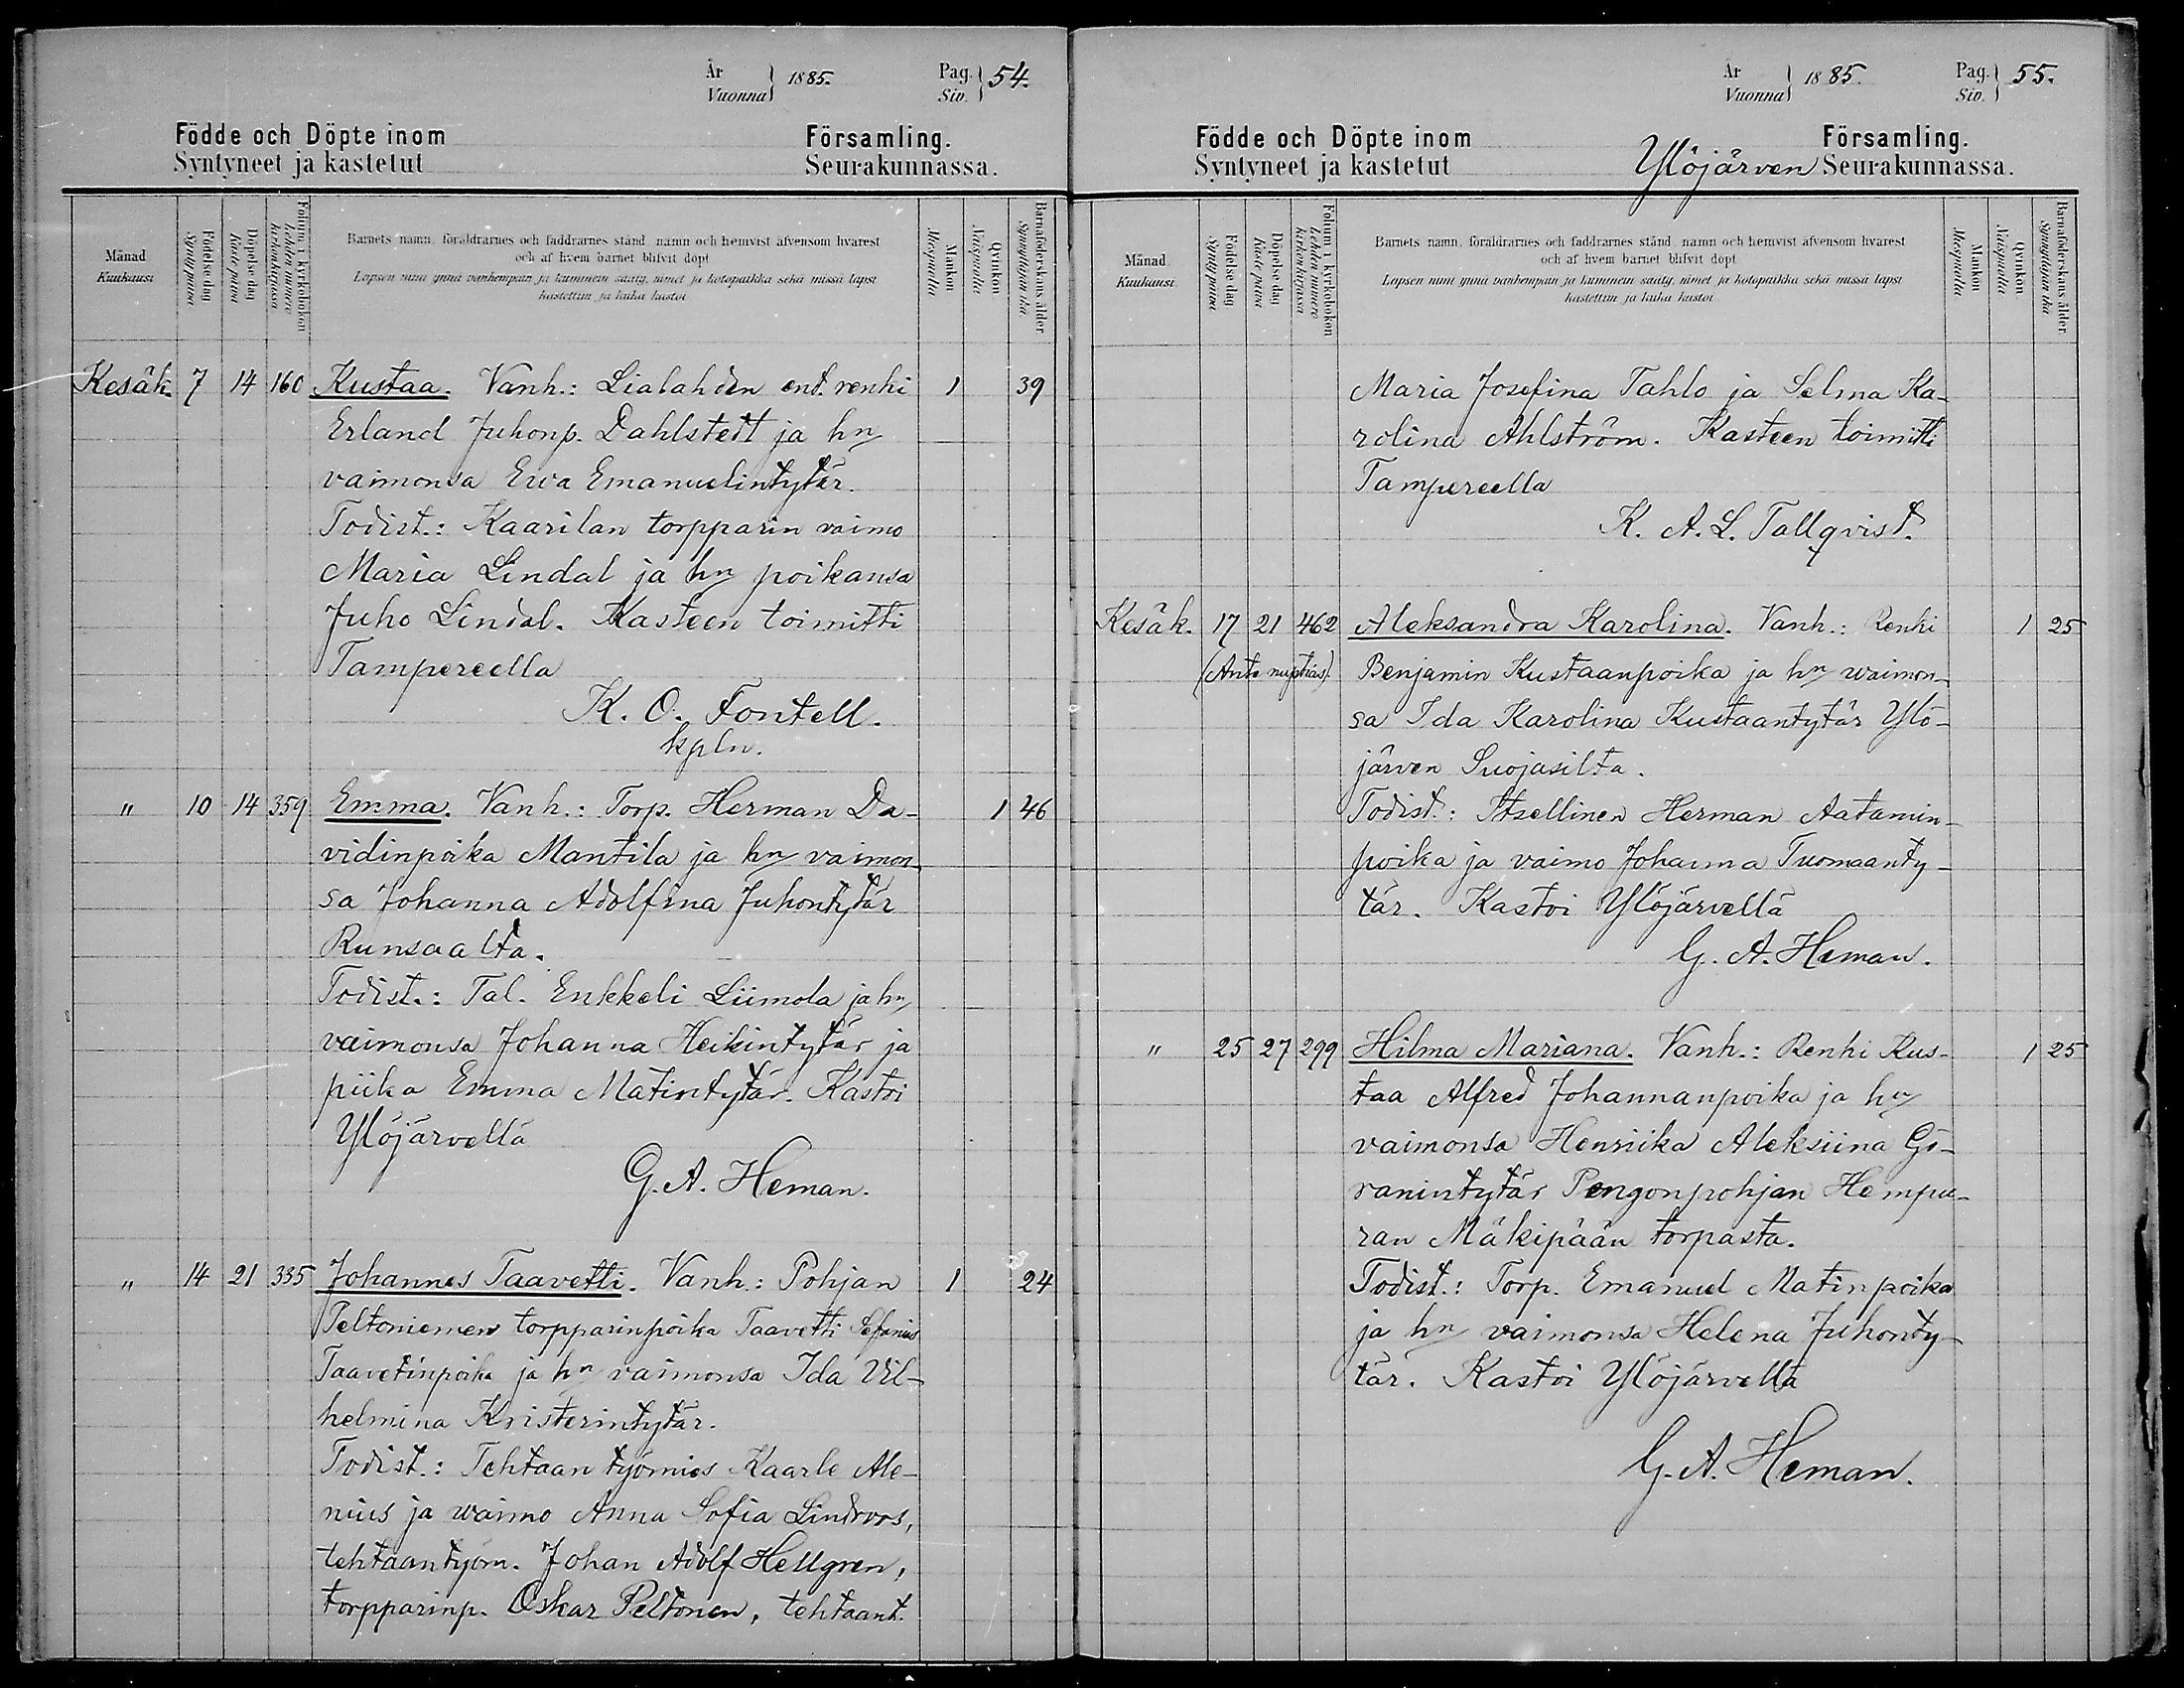 År
Vuonna } 1885. Pag.
Siv. } 54.
Födde och Döpte inom Församling.
Syntyneet ja kastetut Seurakunnassa.
Månad
Kuukausi
Födelsedag
Syntypäivä
Döpelsedag
Kastepäivä
Folium i kyrkoboken
Lehden numero
kirkonkirjassa
Barnets namn, föräldrarnes och faddrarnes stånd, namn och hemvist äfvensom hvarest
och af hvem barnet blifvit döpt
Lapsen nimi ynnä vanhempain ja kummein sääty, nimet ja kotopaikka sekä missä lapsi
kastettiin ja kuka kastoi
Mankön
Miespuolia
Qvinkön
Naispuolia
Barnaföderskans ålder
Synnyttäjän ikä
Kesäk. 7 14 160 Kustaa. Vanh.: Lialahden ent. renki 1 39
Erland Juhonp. Dahlstett ja hn
vaimonsa Ewa Emanuelintytär.
Todist.: Kaarilan torpparin vaimo
Maria Lindal ja hn poikansa
Juho Lindal. Kasteen toimitti
Tampereella
K. O. Fontell.
kpln.
" 10 14 359 Emma. Vanh.: Torp. Herman Da-
vidinpoika Mantila ja hn vaimon- 1 46
sa Johanna Adolfina Juhontytär
Runsaalta.
Todist.: Tal. Enkkeli Liimola ja hn
vaimonsa Johanna Heikintytär ja
piika Emma Matintytär. Kastoi
Ylöjärvellä
G. A. Heman.
" 14 21 335 Johannes Taavetti. Vanh.: Pohjan 1 24
Peltoniemen torpparinpoika Taavetti Sefanius
Taavetinpoika ja hn vaimonsa Ida Vil-
helmina Kristerintytär.
Todist.: Tehtaan työmies Kaarle Ale-
nius ja waimo Anna Sofia Lindroos,
tehtaantyöm. Johan Adolf Hellgren,
torpparinp. Oskar Peltonen, tehtaant.
År
Vuonna } 1885. Pag.
Siv. } 55.
Födde och Döpte inom Församling.
Syntyneet ja kastetut Ylöjärven Seurakunnassa.
Månad
Kuukausi
Födelsedag
Syntypäivä
Döpelsedag
Kastepäivä
Folium i kyrkoboken
Lehden numero
kirkonkirjassa
Barnets namn, föräldrarnes och faddrarnes stånd, namn och hemvist äfvensom hvarest
och af hvem barnet blifvit döpt
Lapsen nimi ynnä vanhempain ja kummein sääty, nimet ja kotopaikka sekä missä lapsi
kastettiin ja kuka kastoi
Mankön
Miespuolia
Qvinkön
Naispuolia
Barnaföderskans ålder
Synnyttäjän ikä
Maria Josefina Tahlo ja Selma Ka-
rolina Ahlström. Kasteen toimitti
Tampereella
K. A. L. Tallqvist.
Kesäk. 17 21 462 Aleksandra Karolina. Vanh.: Renki 1 25
(Ante nuptias). Benjamin Kustaanpoika ja hn waimon-
sa Ida Karolina Kustaantytär Ylö-
järven Suojasilta.
Todist.: Itsellinen Herman Aatamin-
poika ja vaimo Johanna Tuomaanty-
tär. Kastoi Ylöjärvellä
G. A. Heman.
" 25 27 299 Hilma Mariana. Vanh.: Renki Kus- 1 25
taa Alfred Johannanpoika ja hn
vaimonsa Henriika Aleksiina Gö-
ranintytär Pengonpohjan Hempu-
ran Mäkipään torpasta.
Todist.: Torp. Emanuel Matinpoika
ja hn vaimonsa Helena Juhonty-
tär. Kastoi Ylöjärvellä
G. A. Heman.